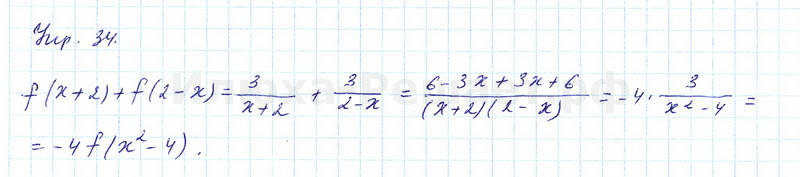 Упр. 34.
f(x+2)+f(2-x) = 3/(x+2) + 3/(2-x) = (6-3x+3x+6)/((x+2)(2-x)) = -4 · 3/(x²-4) =
= -4f(x²-4).